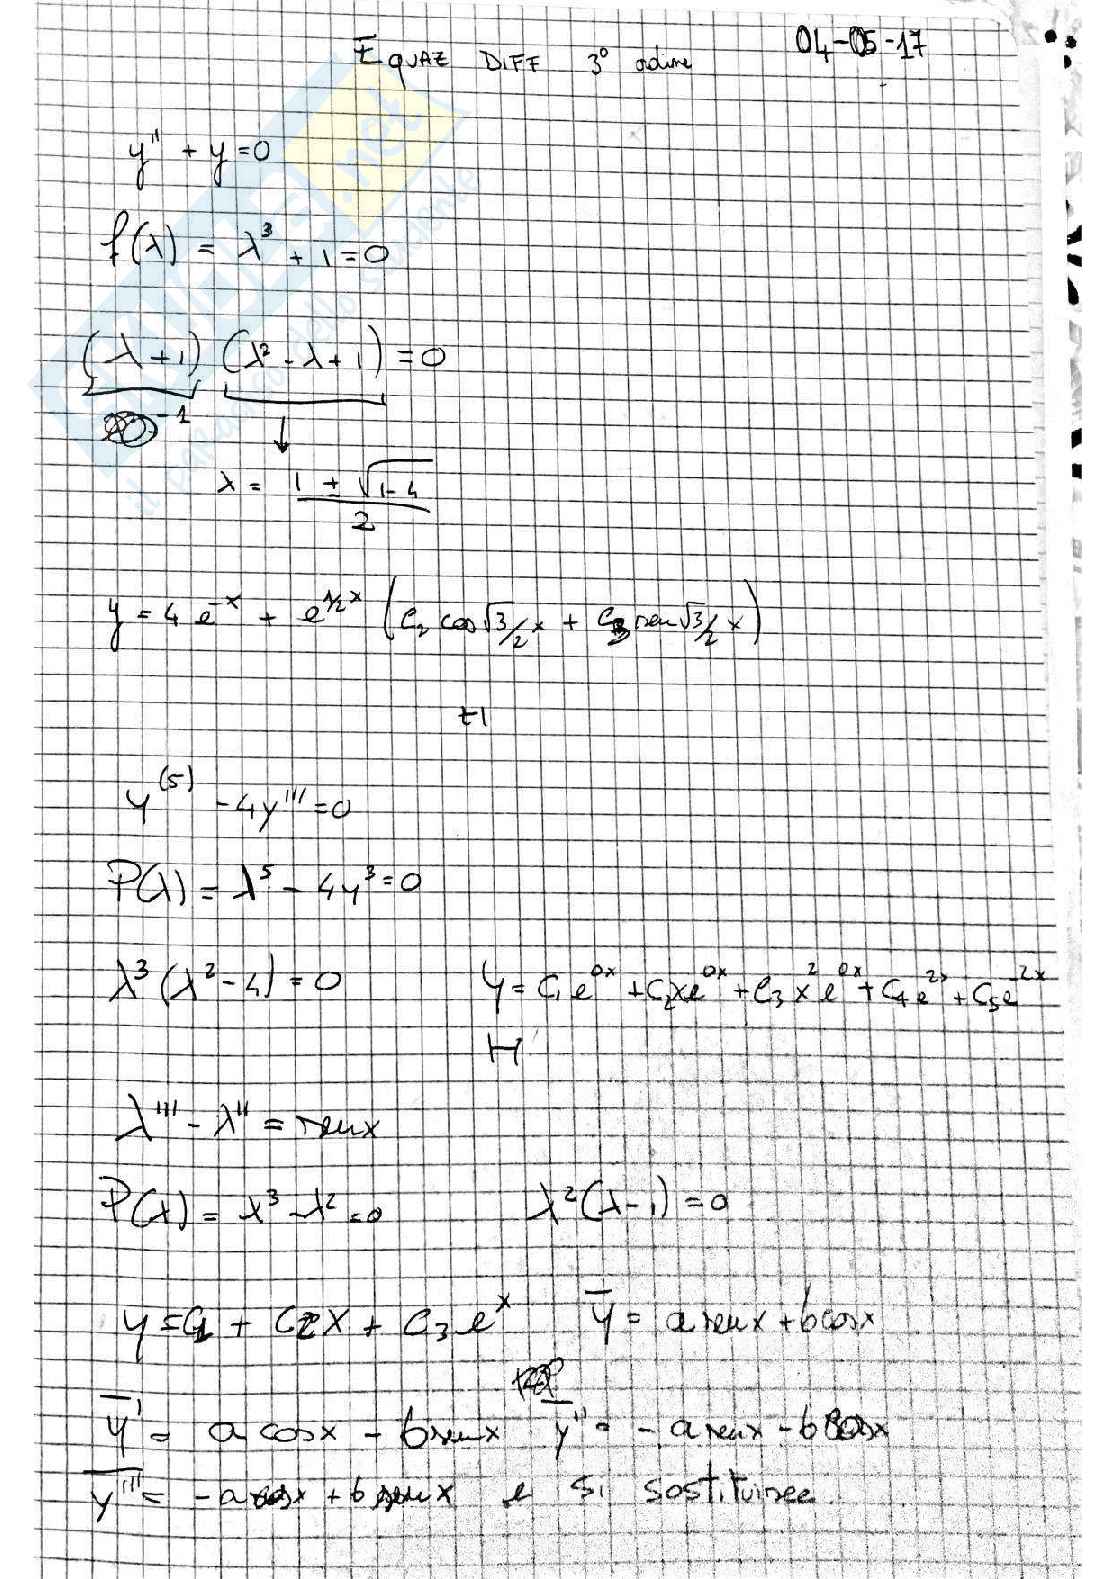 EQUAZ DIFF 3° ordine
04-05-17
y'' + y = 0
f(λ) = λ³ + 1 = 0
(λ+1) (λ² - λ + 1) = 0
-1 ↓
λ = (1 ± √(1-4)) / 2
y = 4 e^(-x) + e^(1/2 x) (C₂ cos √3/2 x + C₃ sen √3/2 x)
y^(5) - 4y''' = 0
P(λ) = λ⁵ - 4y³ = 0
λ³ (λ² - 4) = 0 y = C₁ e^(0x) + C₂ x e^(0x) + C₃ x² e^(0x) + C₄ e^(2x) + C₅ e^(2x)
H
λ''' - λ'' = senx
P(λ) = λ³ - λ² = 0 λ² (λ - 1) = 0
y = C₁ + C₂ x + C₃ e^x ȳ = a senx + b cosx
ȳ' = a cosx - b senx ȳ'' = - a senx - b cosx
ȳ''' = - a cosx + b senx e si sostituisce